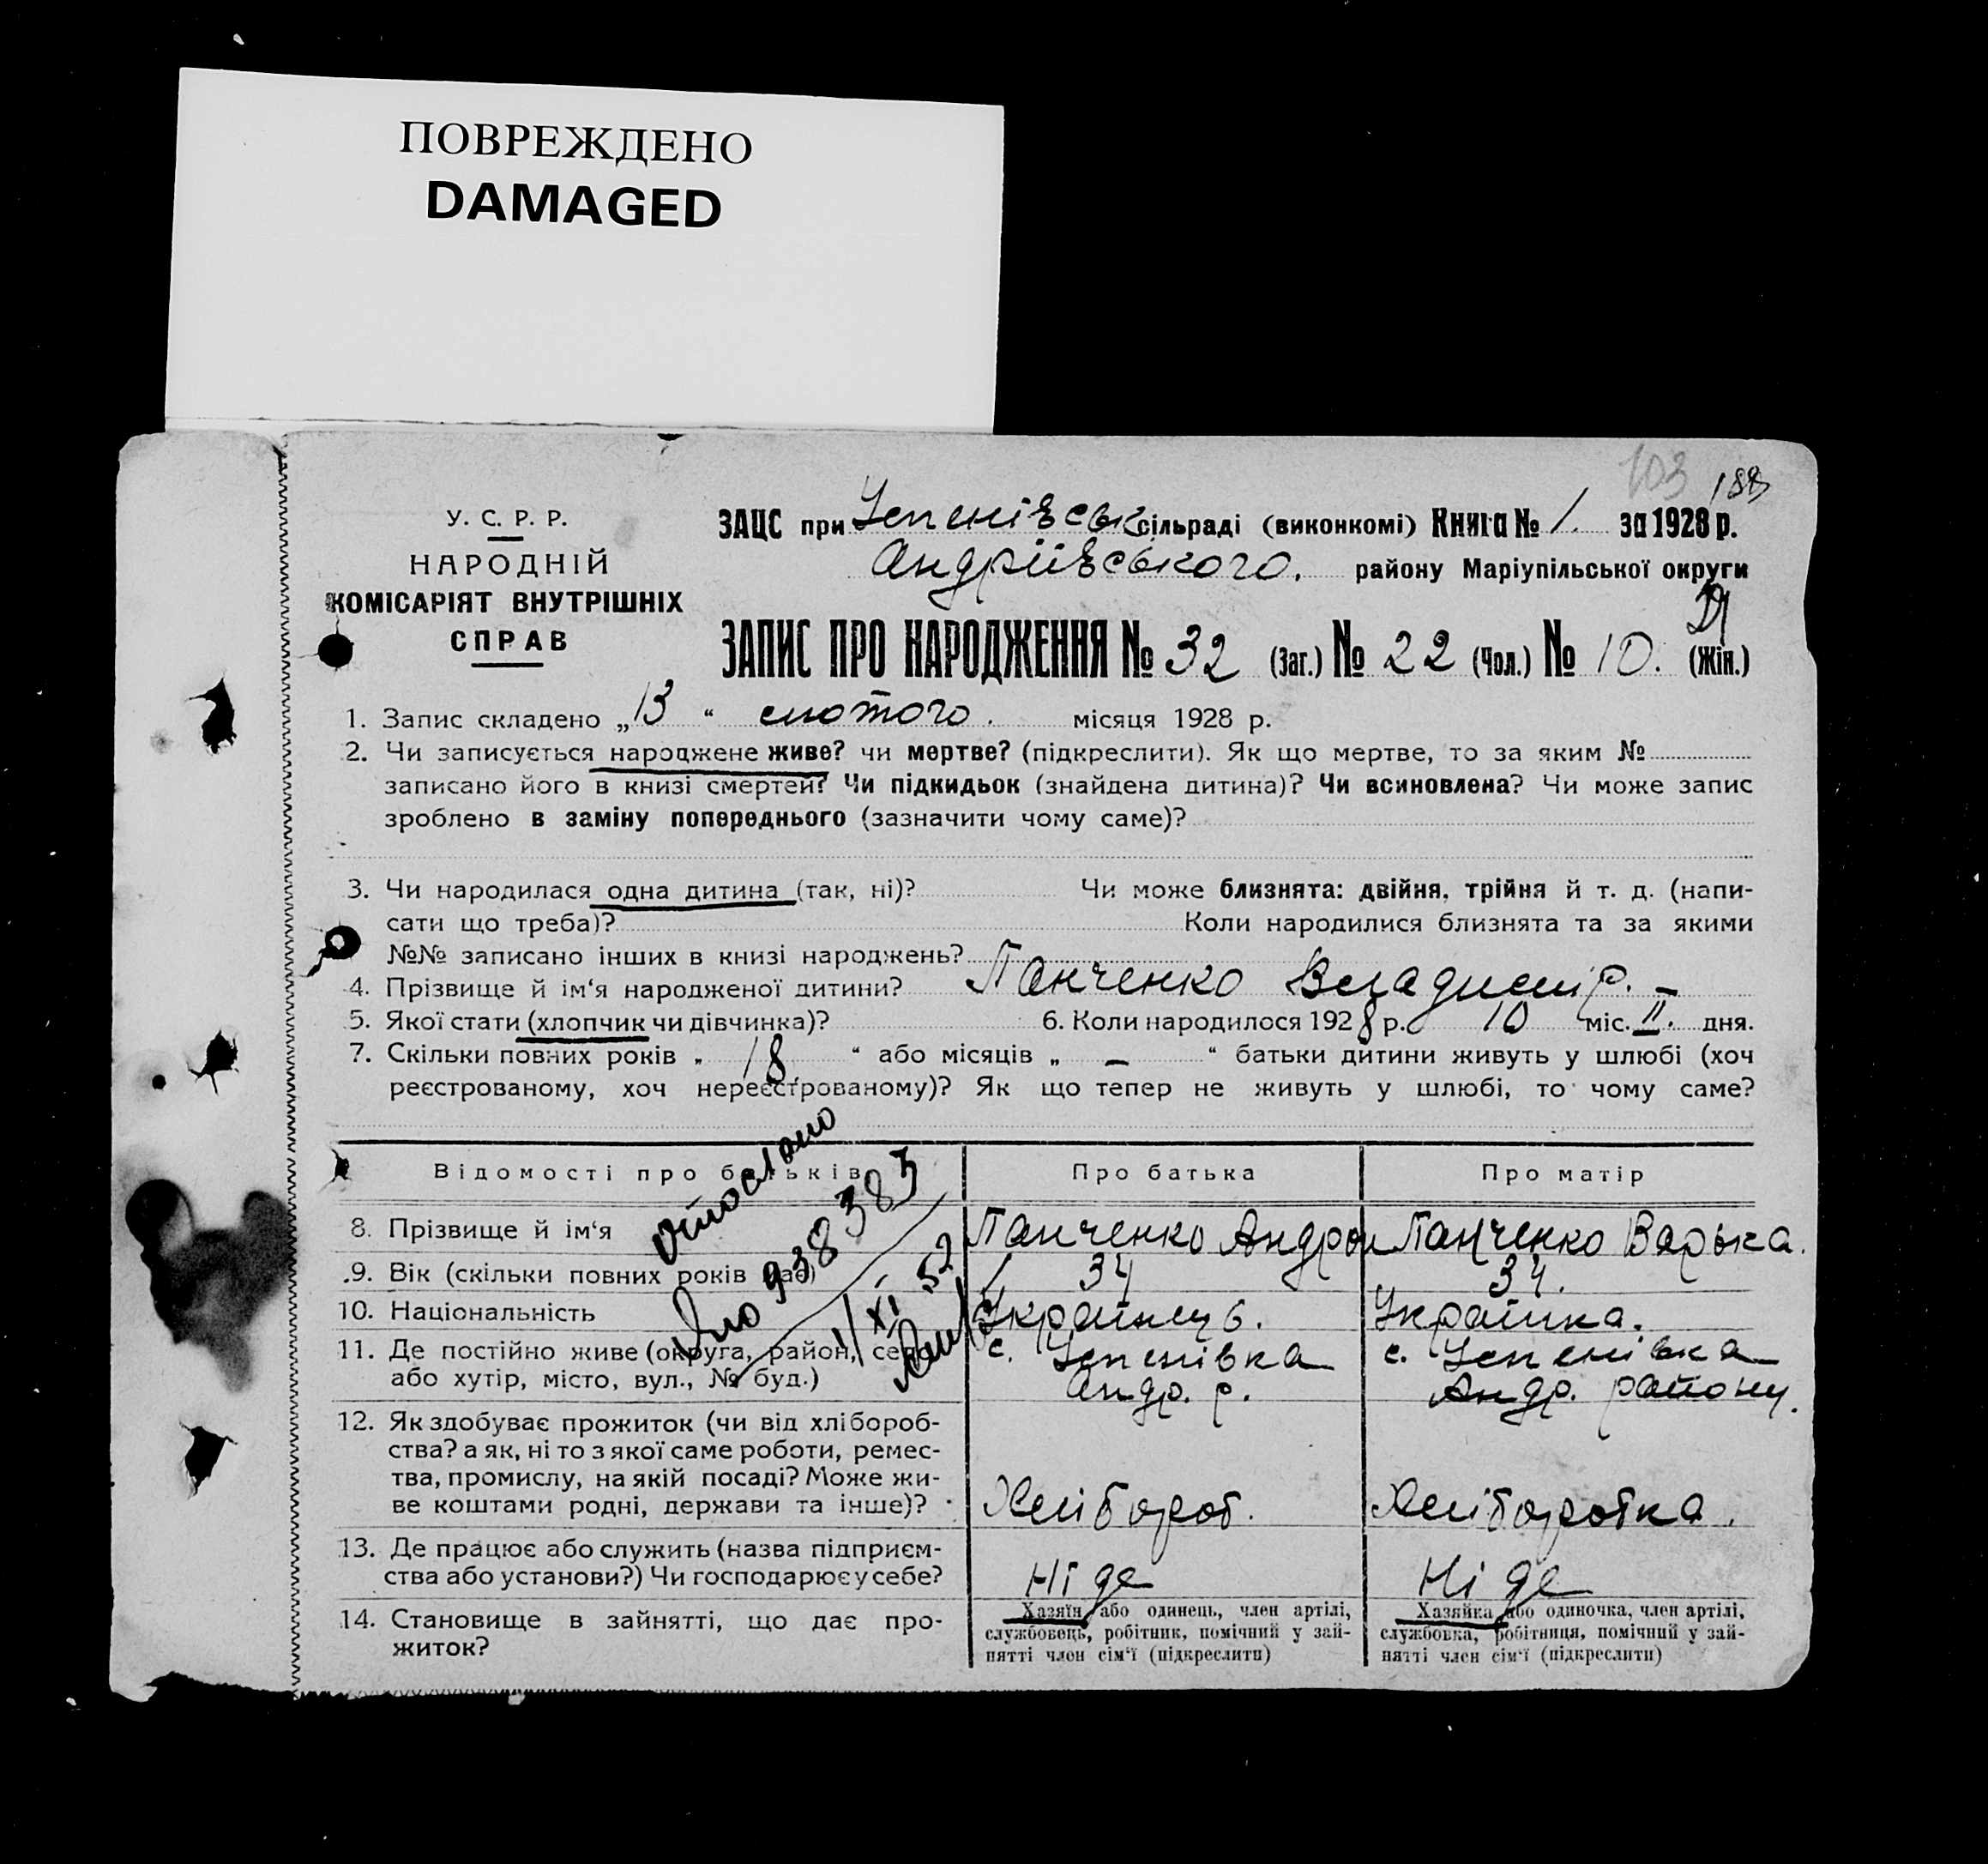 ПОВРЕЖДЕНО
DAMAGED
103 188
У. С. Р. Р.
НАРОДНІЙ
КОМІСАРІЯТ ВНУТРІШНІХ
СПРАВ
ЗАЦС при Успенівськ сільраді (виконкомі) Книга № 1. за 1928 р.
Андріївського. району Маріупільської округи
ЗАПИС ПРО НАРОДЖЕННЯ № 32 (Заг.) № 22 (Чол.) № 10. (Жін.)
1. Запис складено „13“ лютого. місяця 1928 р.
2. Чи записується народжене живе? чи мертве? (підкреслити). Як що мертве, то за яким №
записано його в книзі смертей? Чи підкидьок (знайдена дитина)? Чи всиновлена? Чи може запис
зроблено в заміну попереднього (зазначити чому саме)?
3. Чи народилася одна дитина (так, ні)? Чи може близнята: двійня, трійня й т. д. (напи-
сати що треба)? Коли народилися близнята та за якими
№№ записано інших в книзі народжень?
4. Прізвище й ім‘я народженої дитини? Панченко Владимір. –
5. Якої стати (хлопчик чи дівчинка)? 6. Коли народилося 1928 р. 10 міс. II. дня.
7. Скільки повних років „ 18 “ або місяців „ – “ батьки дитини живуть у шлюбі (хоч
реєстрованому, хоч нереєстрованому)? Як що тепер не живуть у шлюбі, то чому саме?
Відомості про батьків Про батька Про матір
8. Прізвище й ім‘я Панченко Андрей Панченко Варька.
9. Вік (скільки повних років має) 34 34.
10. Національність Українець. Українка.
11. Де постійно живе (округа, район, село с. Успенівка с. Успенівка
або хутір, місто, вул., № буд.) Андр. р. Андр. району.
12. Як здобуває прожиток (чи від хлібороб-
ства? а як, ні то з якої саме роботи, ремес-
тва, промислу, на якій посаді? Може жи-
ве коштами родні, держави та інше)? Хлібороб. Хліборобка.
13. Де працює або служить (назва підприєм-
ства або установи?) Чи господарює у себе? Ні де Ні де
14. Становище в зайнятті, що дає про-
житок?
Хазяїн або одинець, член артілі,
службовець, робітник, помічний у зай-
нятті член сім‘ї (підкреслити)
Хазяйка або одиночка, член артілі,
службовка, робітниця, помічний у зай-
нятті член сім‘ї (підкреслити)
938383
XI 52